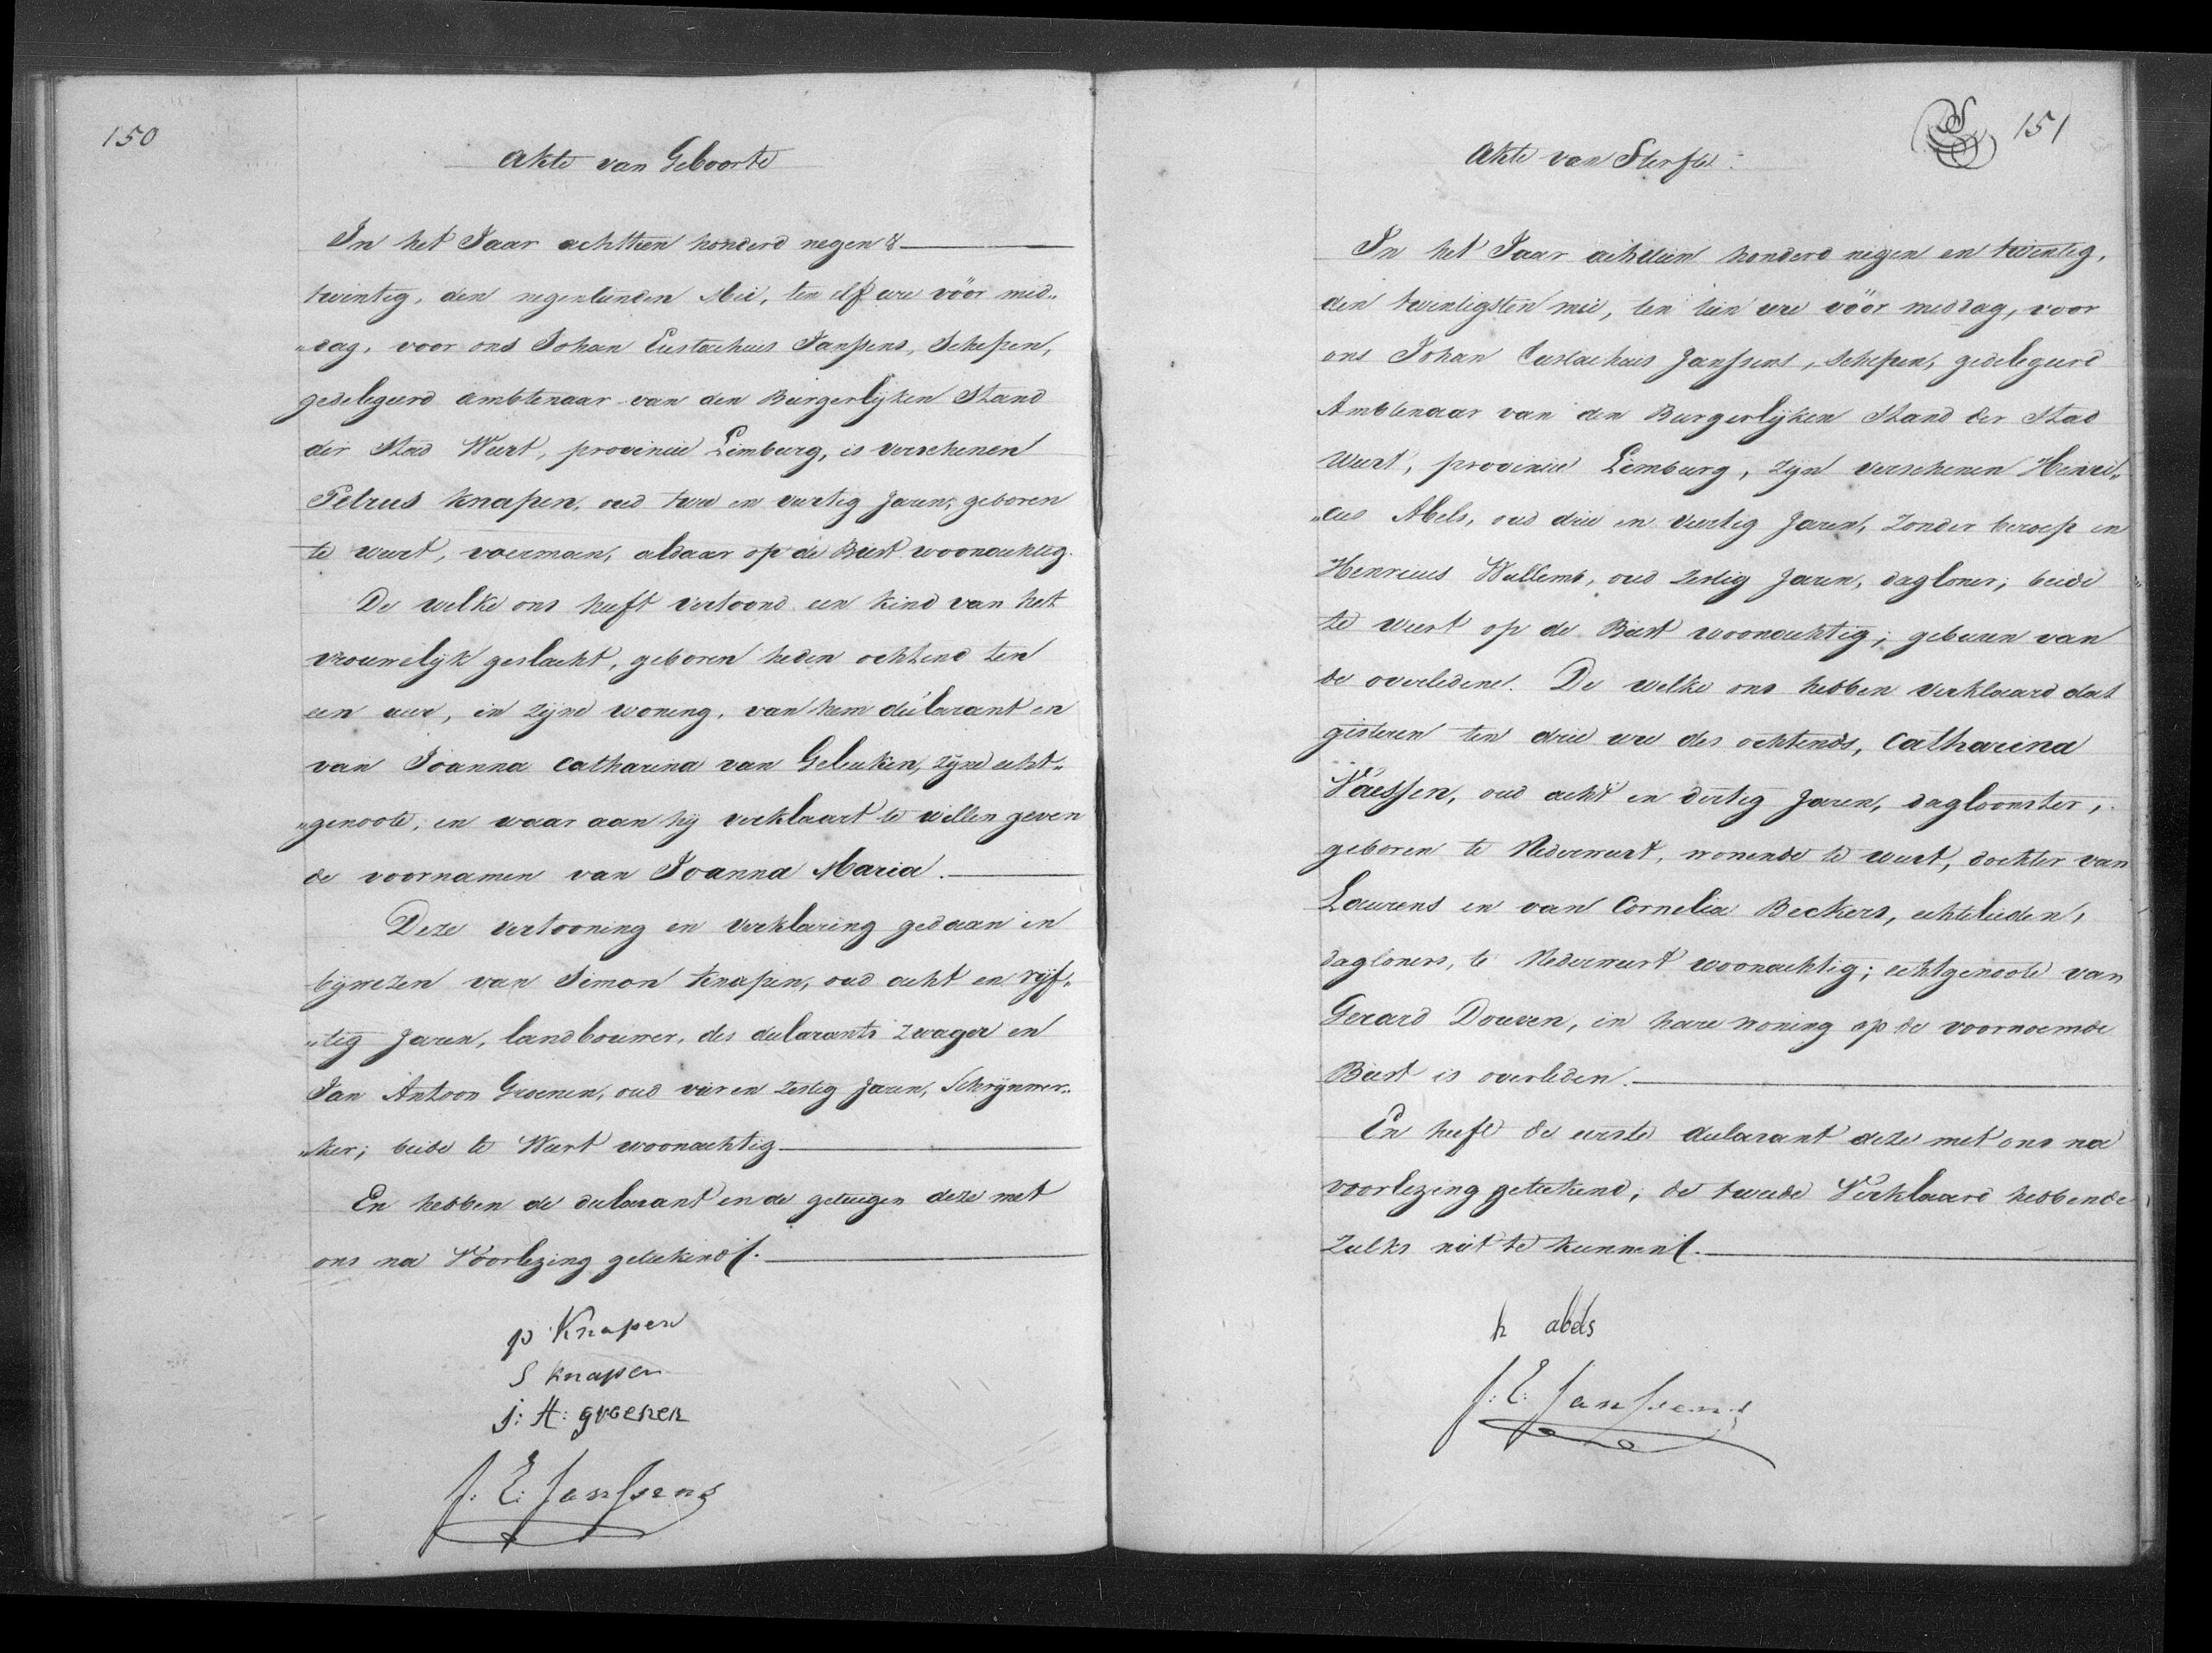 150
Akte van Geboorte
In het Jaar achttien honderd negen &
twintig, den negentienden Mei, ten elf ure vöor mid„
„dag, voor ons Johan Eustachius Janssens, Schepen,
gedelegeerd ambtenaar van den Burgerlijken Stand
der Stad Weert, provincie Limburg, is verschenen
Petrus Knapen, oud twee en veertig Jaren, geboren
te weert, voerman, aldaar op de Biest woonachtig.
De welke ons heeft vertoond een kind van het
vrouwelijk geslacht, geboren heden ochtend ten
een ure, in zijne woning, van hem declarant en
van Joanna Catharina van Geleuken, zijne echt„
„genoote, en waar aan hij verklaart te willen geven
de voornamen van Joanna Maria.
Deze vertooning en verklaring gedaan in
bijwezen van Simon Knapen, oud acht en vijf„
„tig Jaren, landbouwer, des declarants zwager en
Jan Antoon Groenen, oud vier en zestig Jaren, Schrijnwer„
„ker; beide te Weert woonachtig
En hebben de declarant en de getuigen deze met
ons na Voorlezing geteekend.
p Knapen
S knapen
j: A: groenen
J: E: Janssens
151
Akte van Sterfte.
In het Jaar achttien honderd negen en twintig,
den twintigsten mei, ten tien ure vöor middag, voor
ons Johan Eustachius Janssens, Schepen, gedelegeerd
Ambtenaar van den Burgerlijken Stand der Stad
Weert, provincie Limburg, zijn verschenen Henri„
„cus Abels, oud drie en veertig Jaren, zonder beroep en
Henricus Willems, oud zestig Jaren, dagloner; beide
te weert op de Biest woonachtig; geburen van
de overledene. De welke ons hebben verklaard dat
gisteren ten drie ure des ochtends, Catharina
Vaessen, oud acht en dertig Jaren, dagloonster,
geboren te Nederweert, wonende te weert, dochter van
Laurens en van Cornelia Beckers, echtelieden,
dagloners, te Nederweert woonachtig; echtgenoote van
Gerard Douven, in hare woning op de voornoemde
Biest is overleden.
En heeft de eerste declarant deze met ons na
voorlezing geteekend; de tweede Verklaard hebbende
zulks niet te kunnen.
h abels
J: E: Janssens